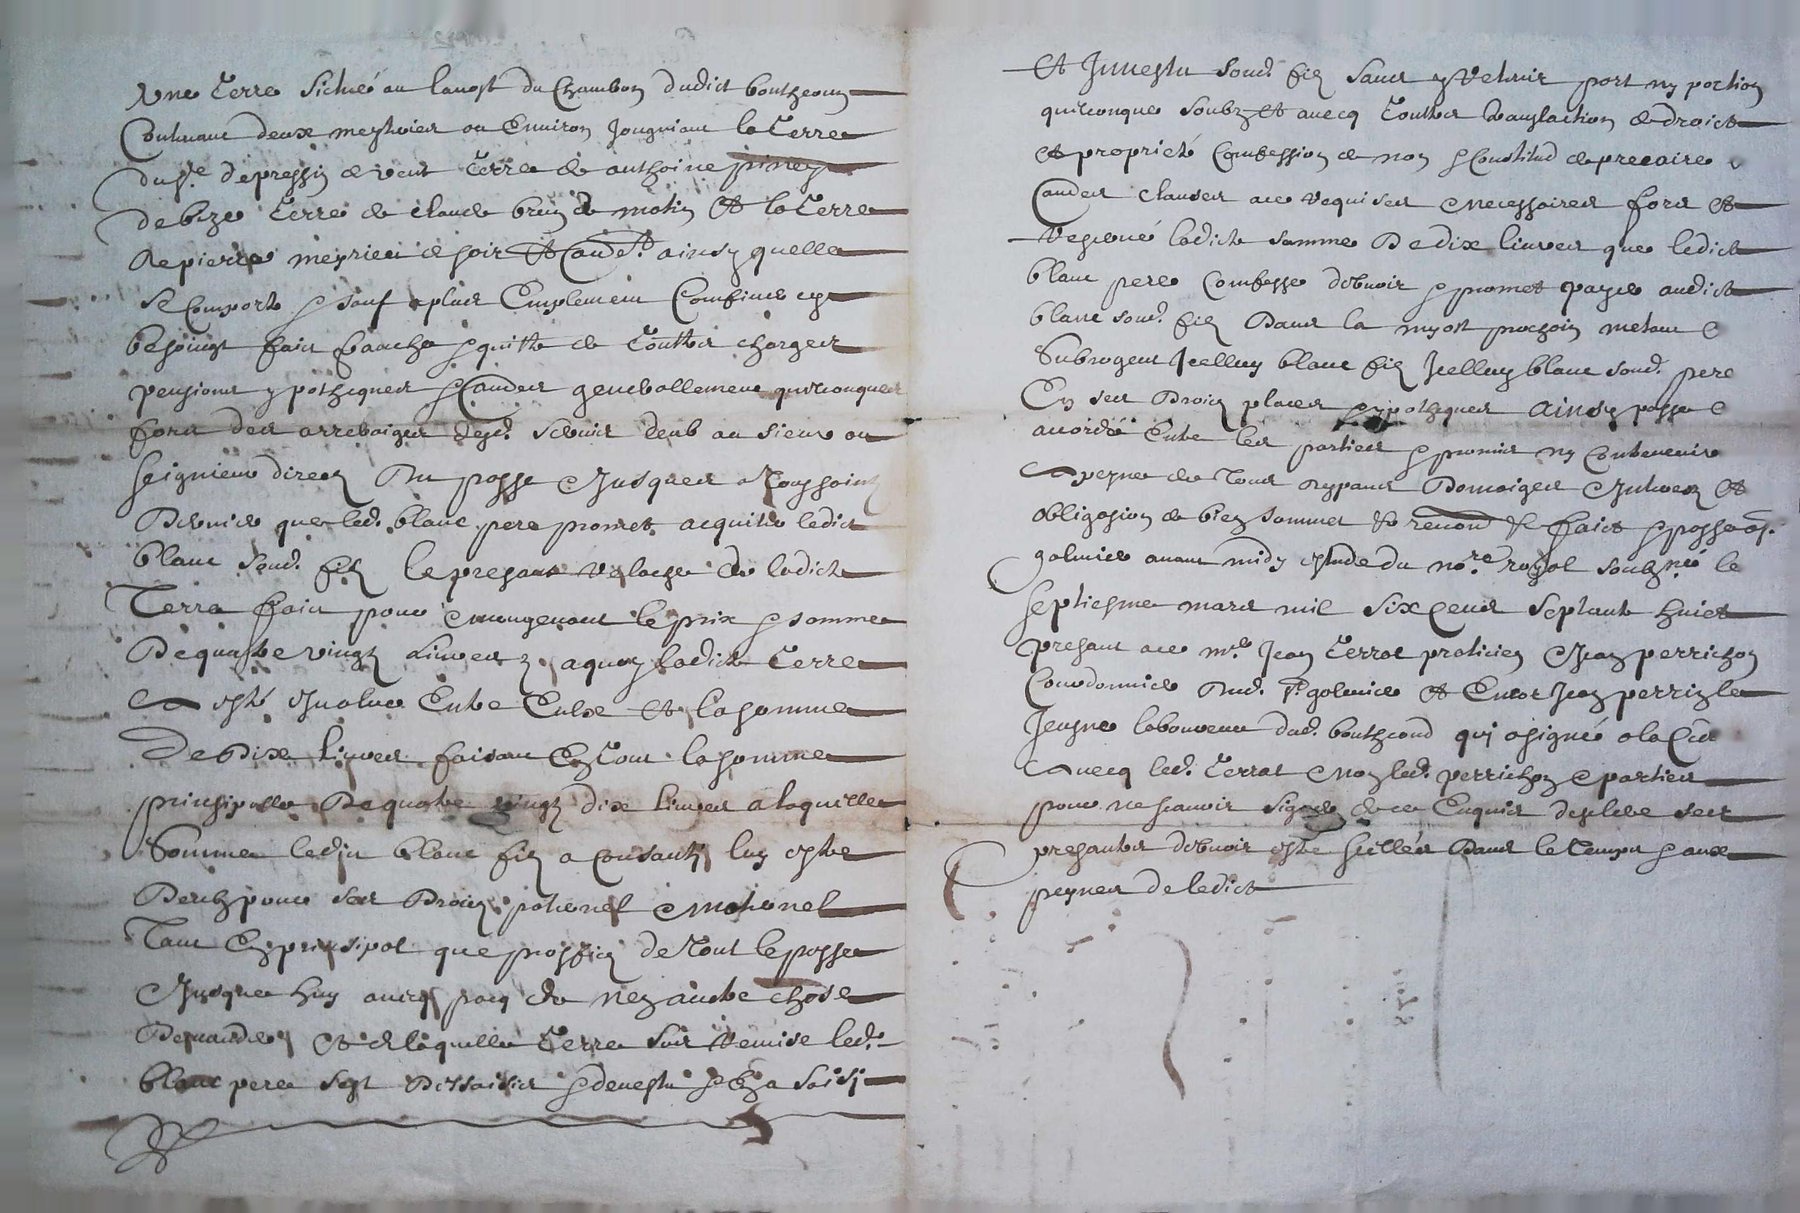 Une terre situé au lanost du Chambon dudict boutheon
Contenant deux meytiers ou Environ Jougniant la terre
du Sr depressin de vent terre de anthoine piney
de bize terre de claude brun de matin Et la terre
de pierre meyrieu de soir Et Caude ainsy quelle
se comporte & sauf a plus Emplement Confiner sy
besoingt faict franche & quitte de touttes charges
pensions ypotheques & Caudes generallement quelconques
fors des arreraiges servis deub au sieur ou
seigneur direct du passe Jusques a toussainctz
dernier que led. blanc pere promet acquitter ledict
blanc sond. filz la presant relache de ladicte
Terre faict pour moyenant le prix & somme
De quatre vingtz livres a quoy ladicte terre
a esté Evalué Entre Eulx et la somme
De Dix livres faisant En tout la somme
principalle De quatre vingtz dix livres a laquelle
Somme ledict blanc filz a consanty luy estre
pour ses Droictz paternel & maternel
Tant En prinsipal que proffict de tout le passe
Jusques huy avecq pacq de ny autre chose
Demander Et de laquelle terre sus remise led.
blanc pere sest Dessaisir & devestu & En a saisi
Et Investu sond. filz sans y retenir part ny portion
quelconque soubz Et avecq touttes translation de droict
Et proprieté Confession de non & Constitud de precaire
Caudes clauses ace requises & necessaires fors Et
reservé ladicte somme De dix livres que ledict
blanc pere Confesse debvoir & promet payer audict
blanc sond. filz Dans la myost prochain metant &
Subrogeant Icelluy blanc filz Icelluy blanc sond. pere
En ses Droictz places & ypotheques ainsy passe &
accordé Entre les parties & promis ny Contrevenir
a peyne de tous despans Domaiges Interestz Et
obligasion de biens sommet & renon & faict & passe a St.
galmier avant midy estude du nore royal soubzné le
septiesme mars mil six cens septante huict
presant ace me Jean terrat praticien & Jean perrichon
Courdonnier dud. St galmier Et Encor Jean perrin le
Jeusne laboureur dud. boutheond qui a signé a la Cede
avecq led. terrat non led. perrichon & parties
pour ne scavoir signer de ce Enquis desclere ses
presantes debvoir estre scillés Dans le temps & aux
peynes de ledict